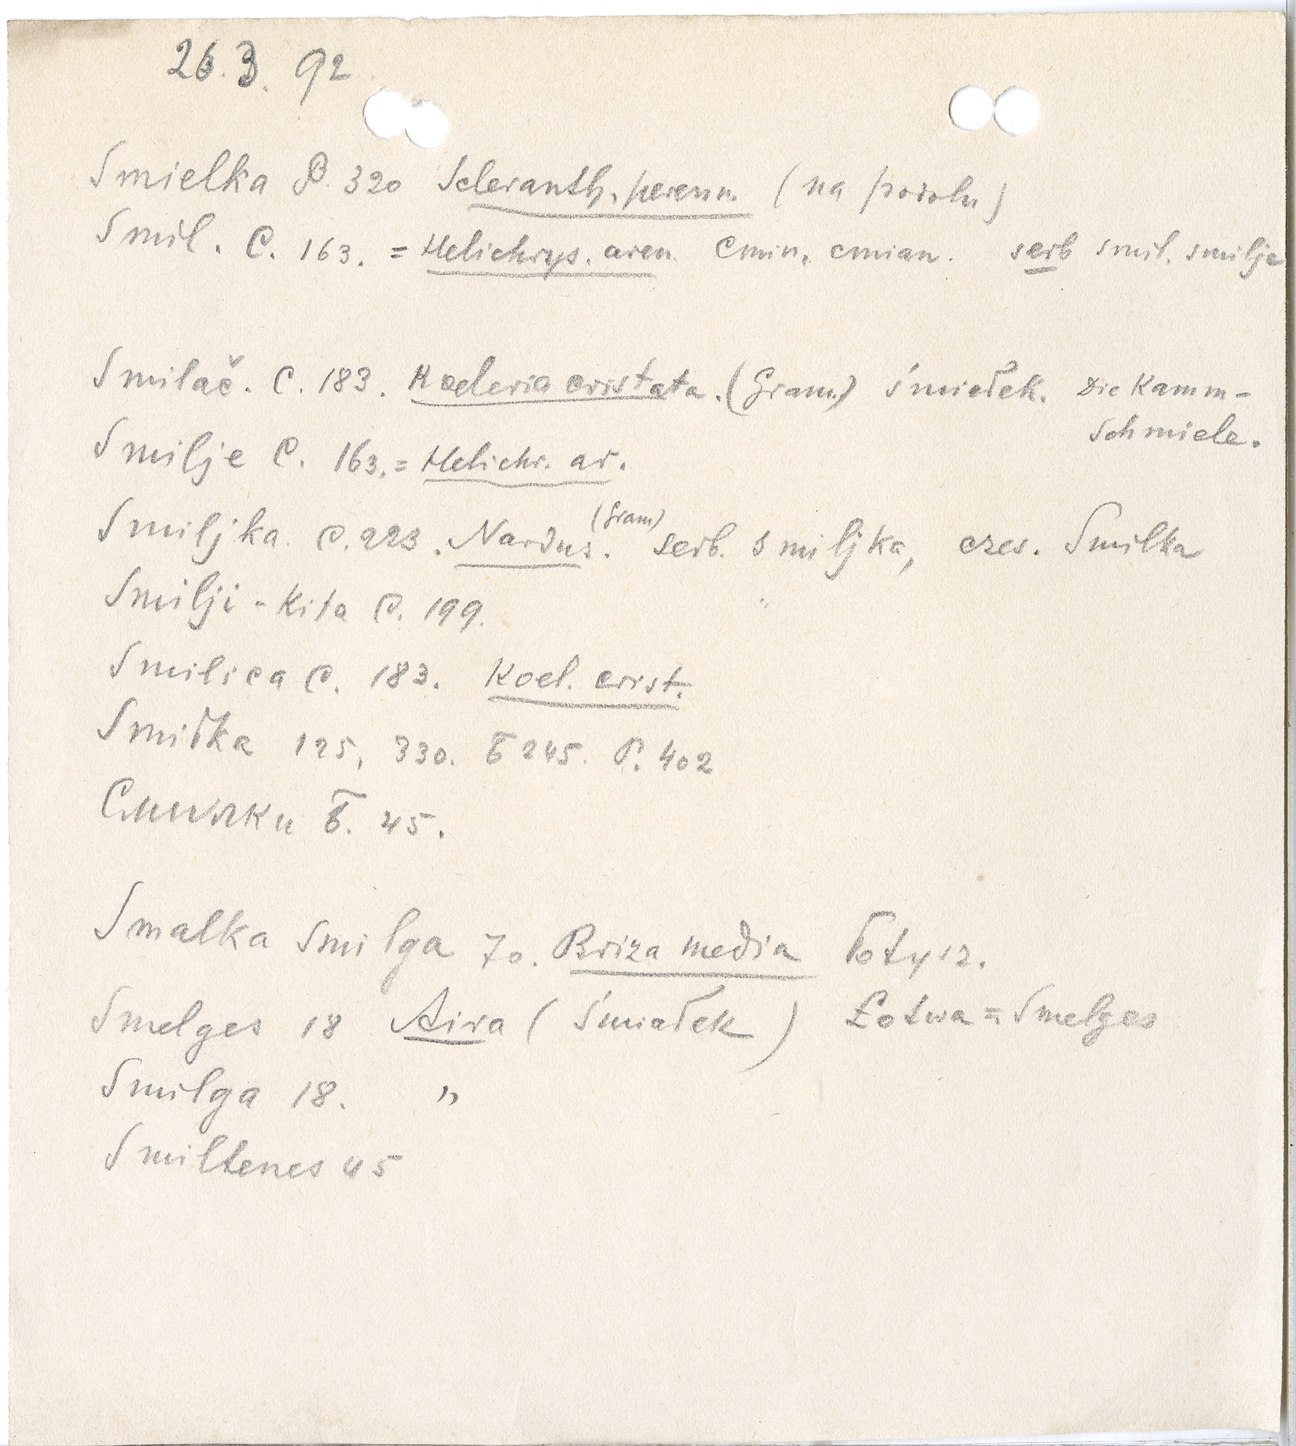 26.3. 92
Smielka P. 320 Scleranth. perenn. (na podolu)
Smil. C. 163. = Helichrys. aren. Cmin, cmian. serb smil. smilje
Smilač. C. 183. Koeleria cristata. (Gram.) śmiałek. Die Kamm-
schmiele.
Smilje C. 163. = Helichr. ar.
Smiljka. C. 223. Nardus. (Gram) serb. smiljka, czes. Smilka
Smilji-Kita C. 199.
Smilica C. 183. Koel. crist.
Smiłka 125, 330. Б 245. P. 402
Смилки Б. 45.
Smalka smilga 70. Briza media Łotysz.
Smelges 18 Aira (śmiałek) Łotwa = Smelges
Smilga 18. "
Smiltenes 45